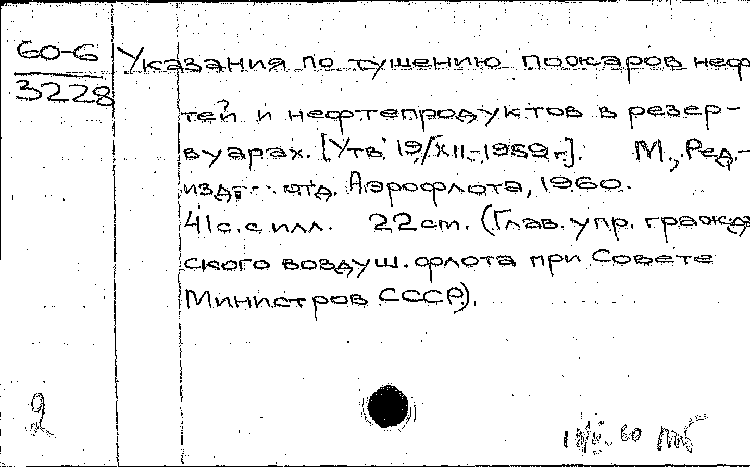 60-6
3228
Указания по тушению пожаров неф
тей и нефтепродуктов в резер-
вуарах. [Утв. 19/XII-1959 г.]. М., Ред.-
изд. отд. Аэрофлота, 1960.
41 с. с илл. 22 см. (Глав. упр. гражд
ского воздуш. флота при Совете
Министров СССР).
2
60